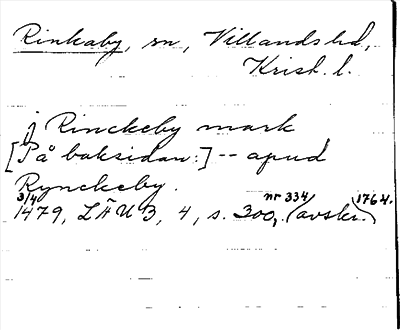 Rinkaby, sn, Villands hd,
Krist. l.
j Rinckeby mark
[På baksidan:] -- apud
Rynckeby.
3/4
1479, LÄUB, 4, s. 300, nr 334 (avskr. 1764.)